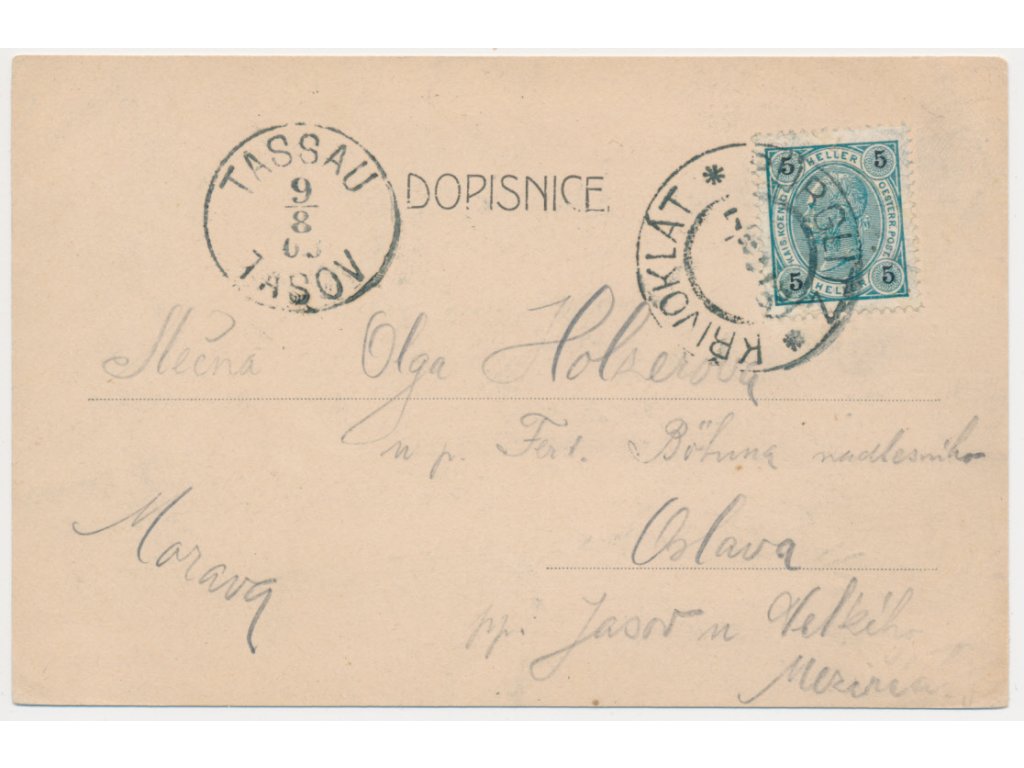 TASSAU
9
8
TASOV
DOPISNICE
KŘIVOKLÁT * PÜRGLITZ *
5 HELLER 5
KAIS. KOENIGL. OESTERR. POST.
5 HELLER 5
Slečna Olga Holserova
u p. Ferd. Böhma nadlesního
Oslava
Morava
pp. Jasov u Velkého
Meziříčí